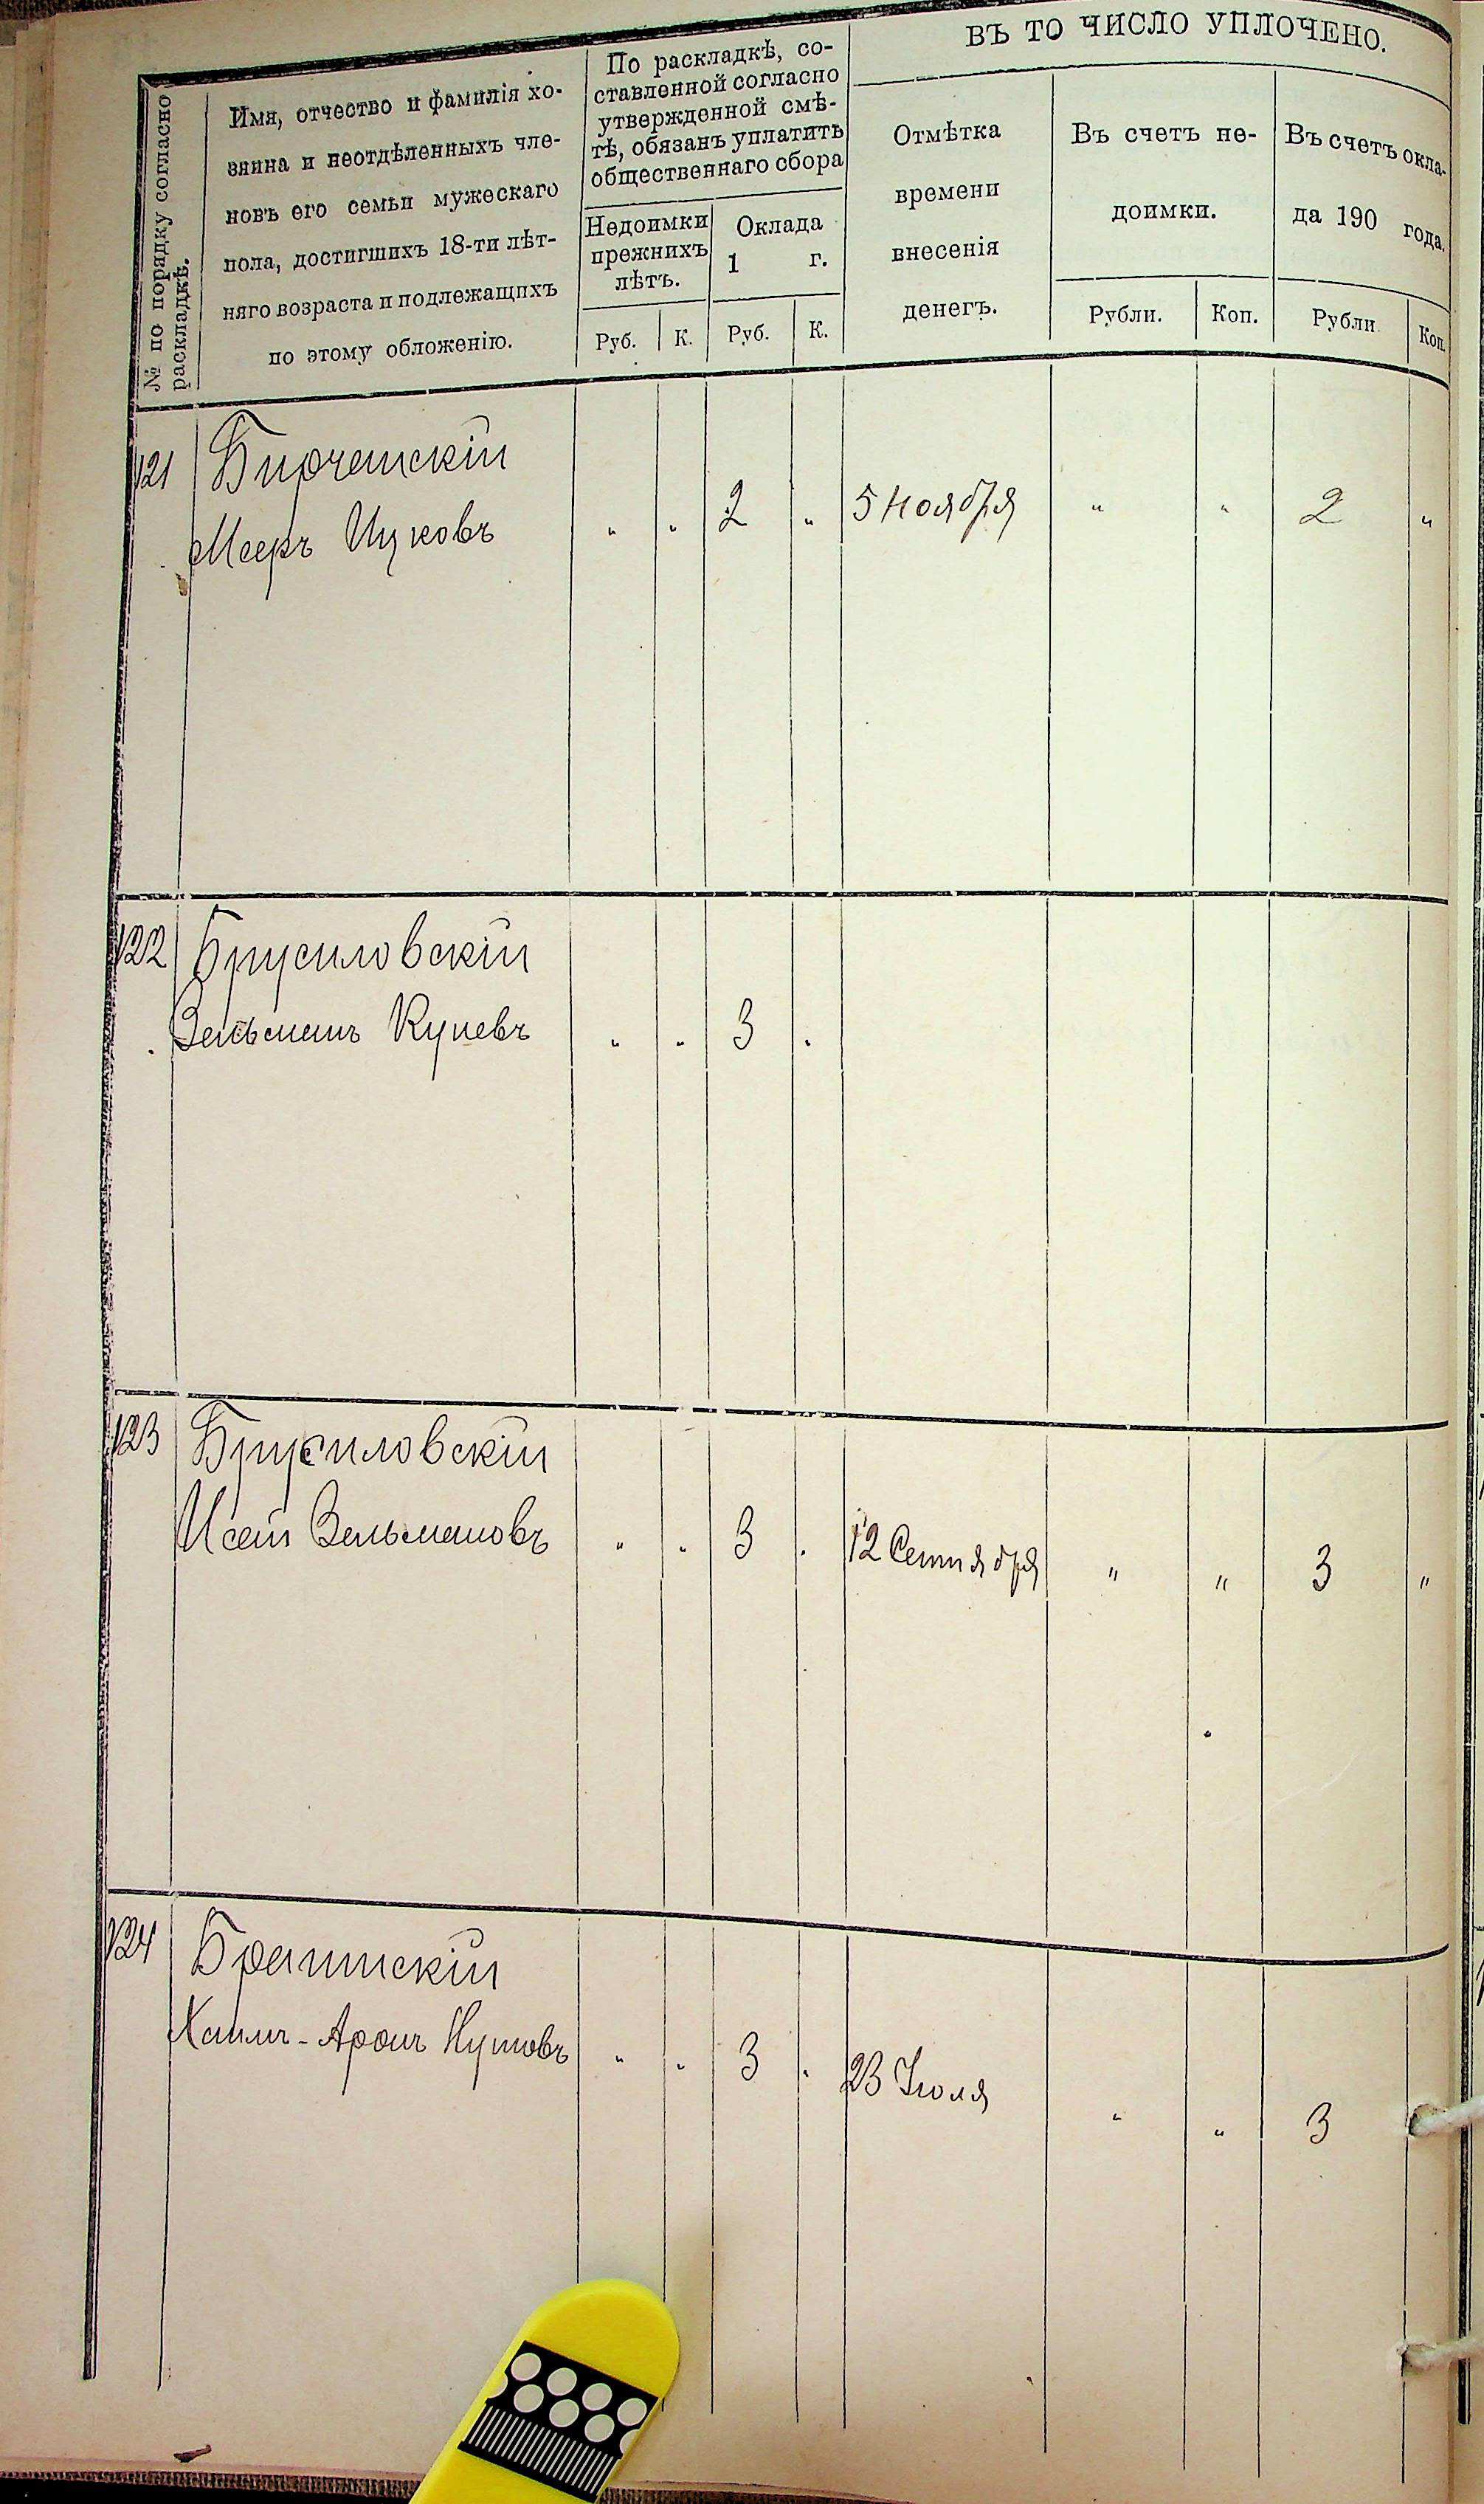 № по порядку согласно
раскладкѣ.
Имя, отчество и фамилія хо-
зяина и неотдѣленныхъ чле-
новъ его семьи мужескаго
пола, достигшихъ 18-ти лѣт-
няго возраста и подлежащихъ
по этому обложенію.
По раскладкѣ, со-
ставленной согласно
утвержденной смѣ-
тѣ, обязанъ уплатить
общественнаго сбора
Недоимки
прежнихъ
лѣтъ.
Оклада
1 г.
Руб. К. Руб. К.
ВЪ ТО ЧИСЛО УПЛОЧЕНО.
Отмѣтка
времени
внесенія
денегъ.
Въ счетъ не-
доимки.
Рубли. Коп.
Въ счетъ окла-
да 190 года.
Рубли Коп.
121 Бирчанскій
Мееръ Ицковъ " " 2 " 5 Ноября " " 2 "
122 Брусиловскій
Зельманъ Куневъ " " 3 "
123 Брусиловскій
Исай Зельмановъ " " 3 " 12 Сентября " " 3 "
124 Браиинскій
Хаимъ-Аронъ Нутовъ " " 3 " 23 Іюля " " 3